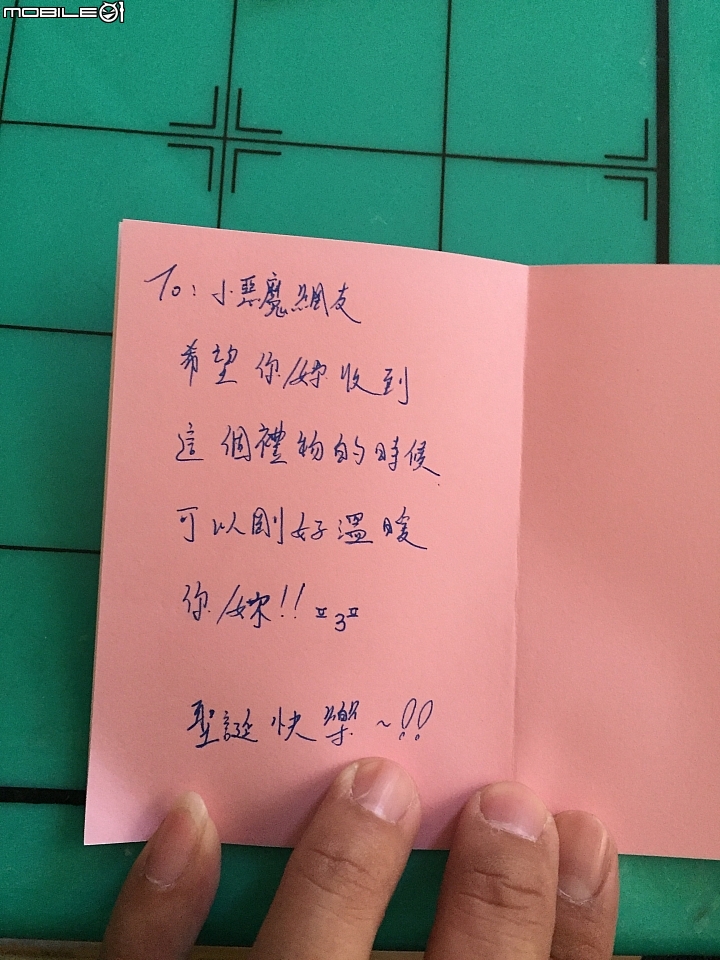 MOBILE01
To: 小惡魔網友
希望你/妳收到
這個禮物的時候
可以剛好溫暖
你/妳!! ㅍ3ㅍ
聖誕快樂~!!